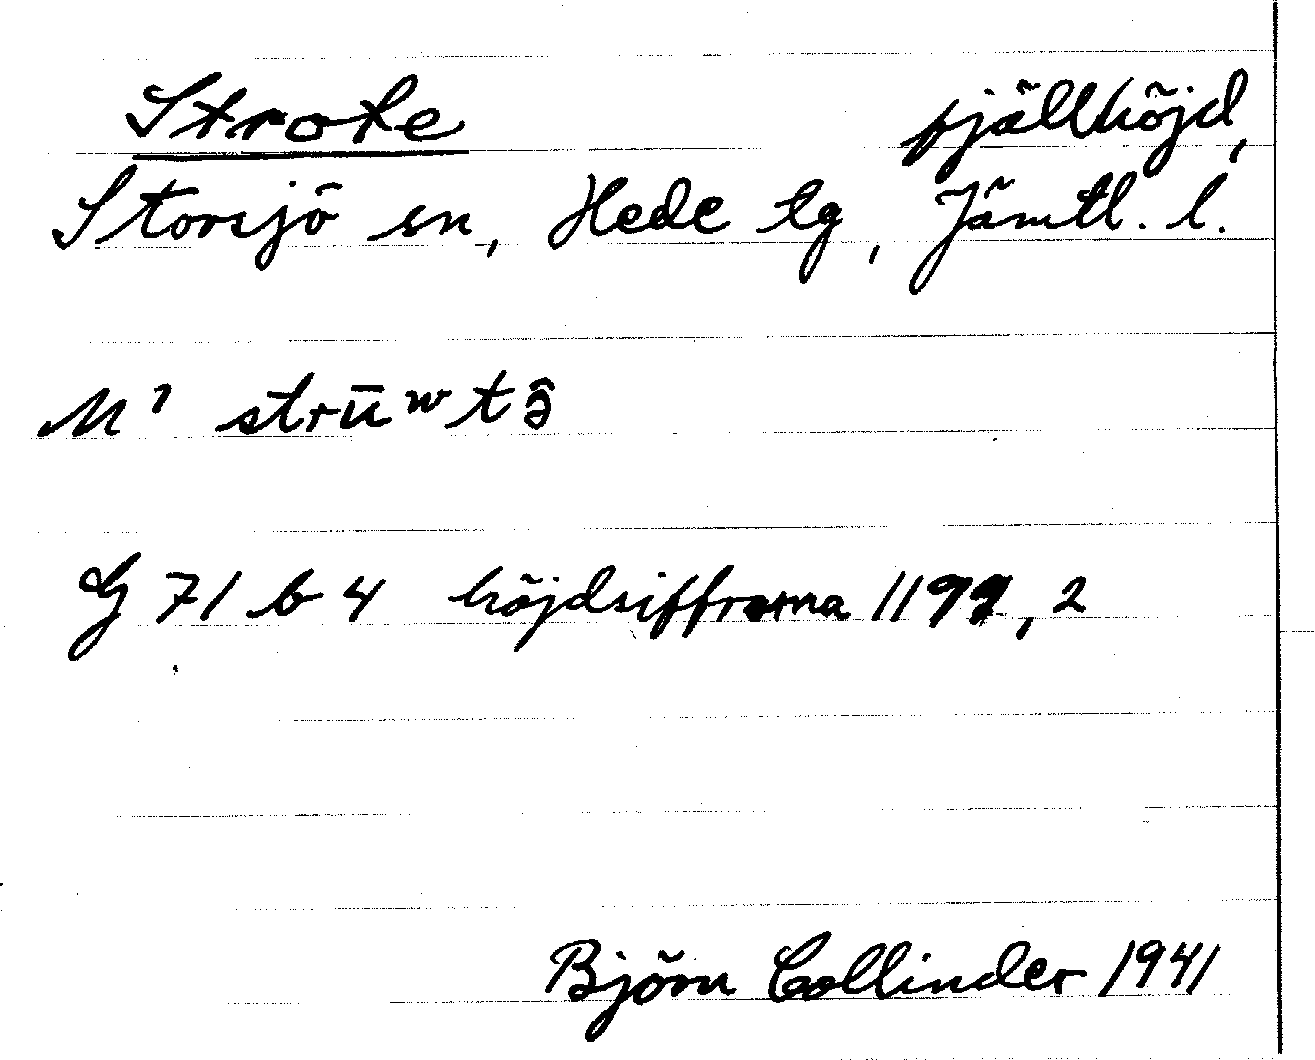 Strote fjällhöjd,
Storsjö sn, Hede tg, Jämtl. l.
M¹ strūʷtə̂
G 71 b 4 höjdsiffrorna 1199, 2
Björn Collinder 1941